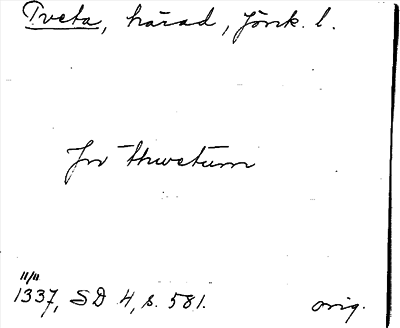 Tveta, härad, Jönk. l.
Jn Thwetum
11/11
1337, SD 4, s. 581. orig.